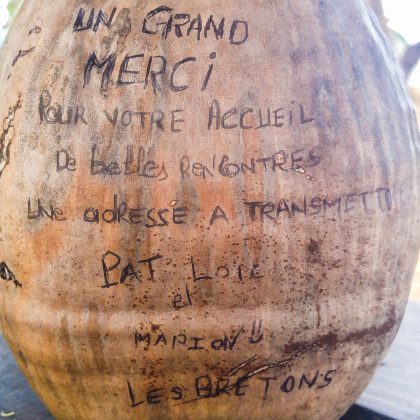 UN GRAND
MERCi
POUR VOTRE ACCUEIL
De belles RENCONTRES
UNE adRESSE A TRANSMETTRE
PAT LOIC
et
MARION
LES BRETONS